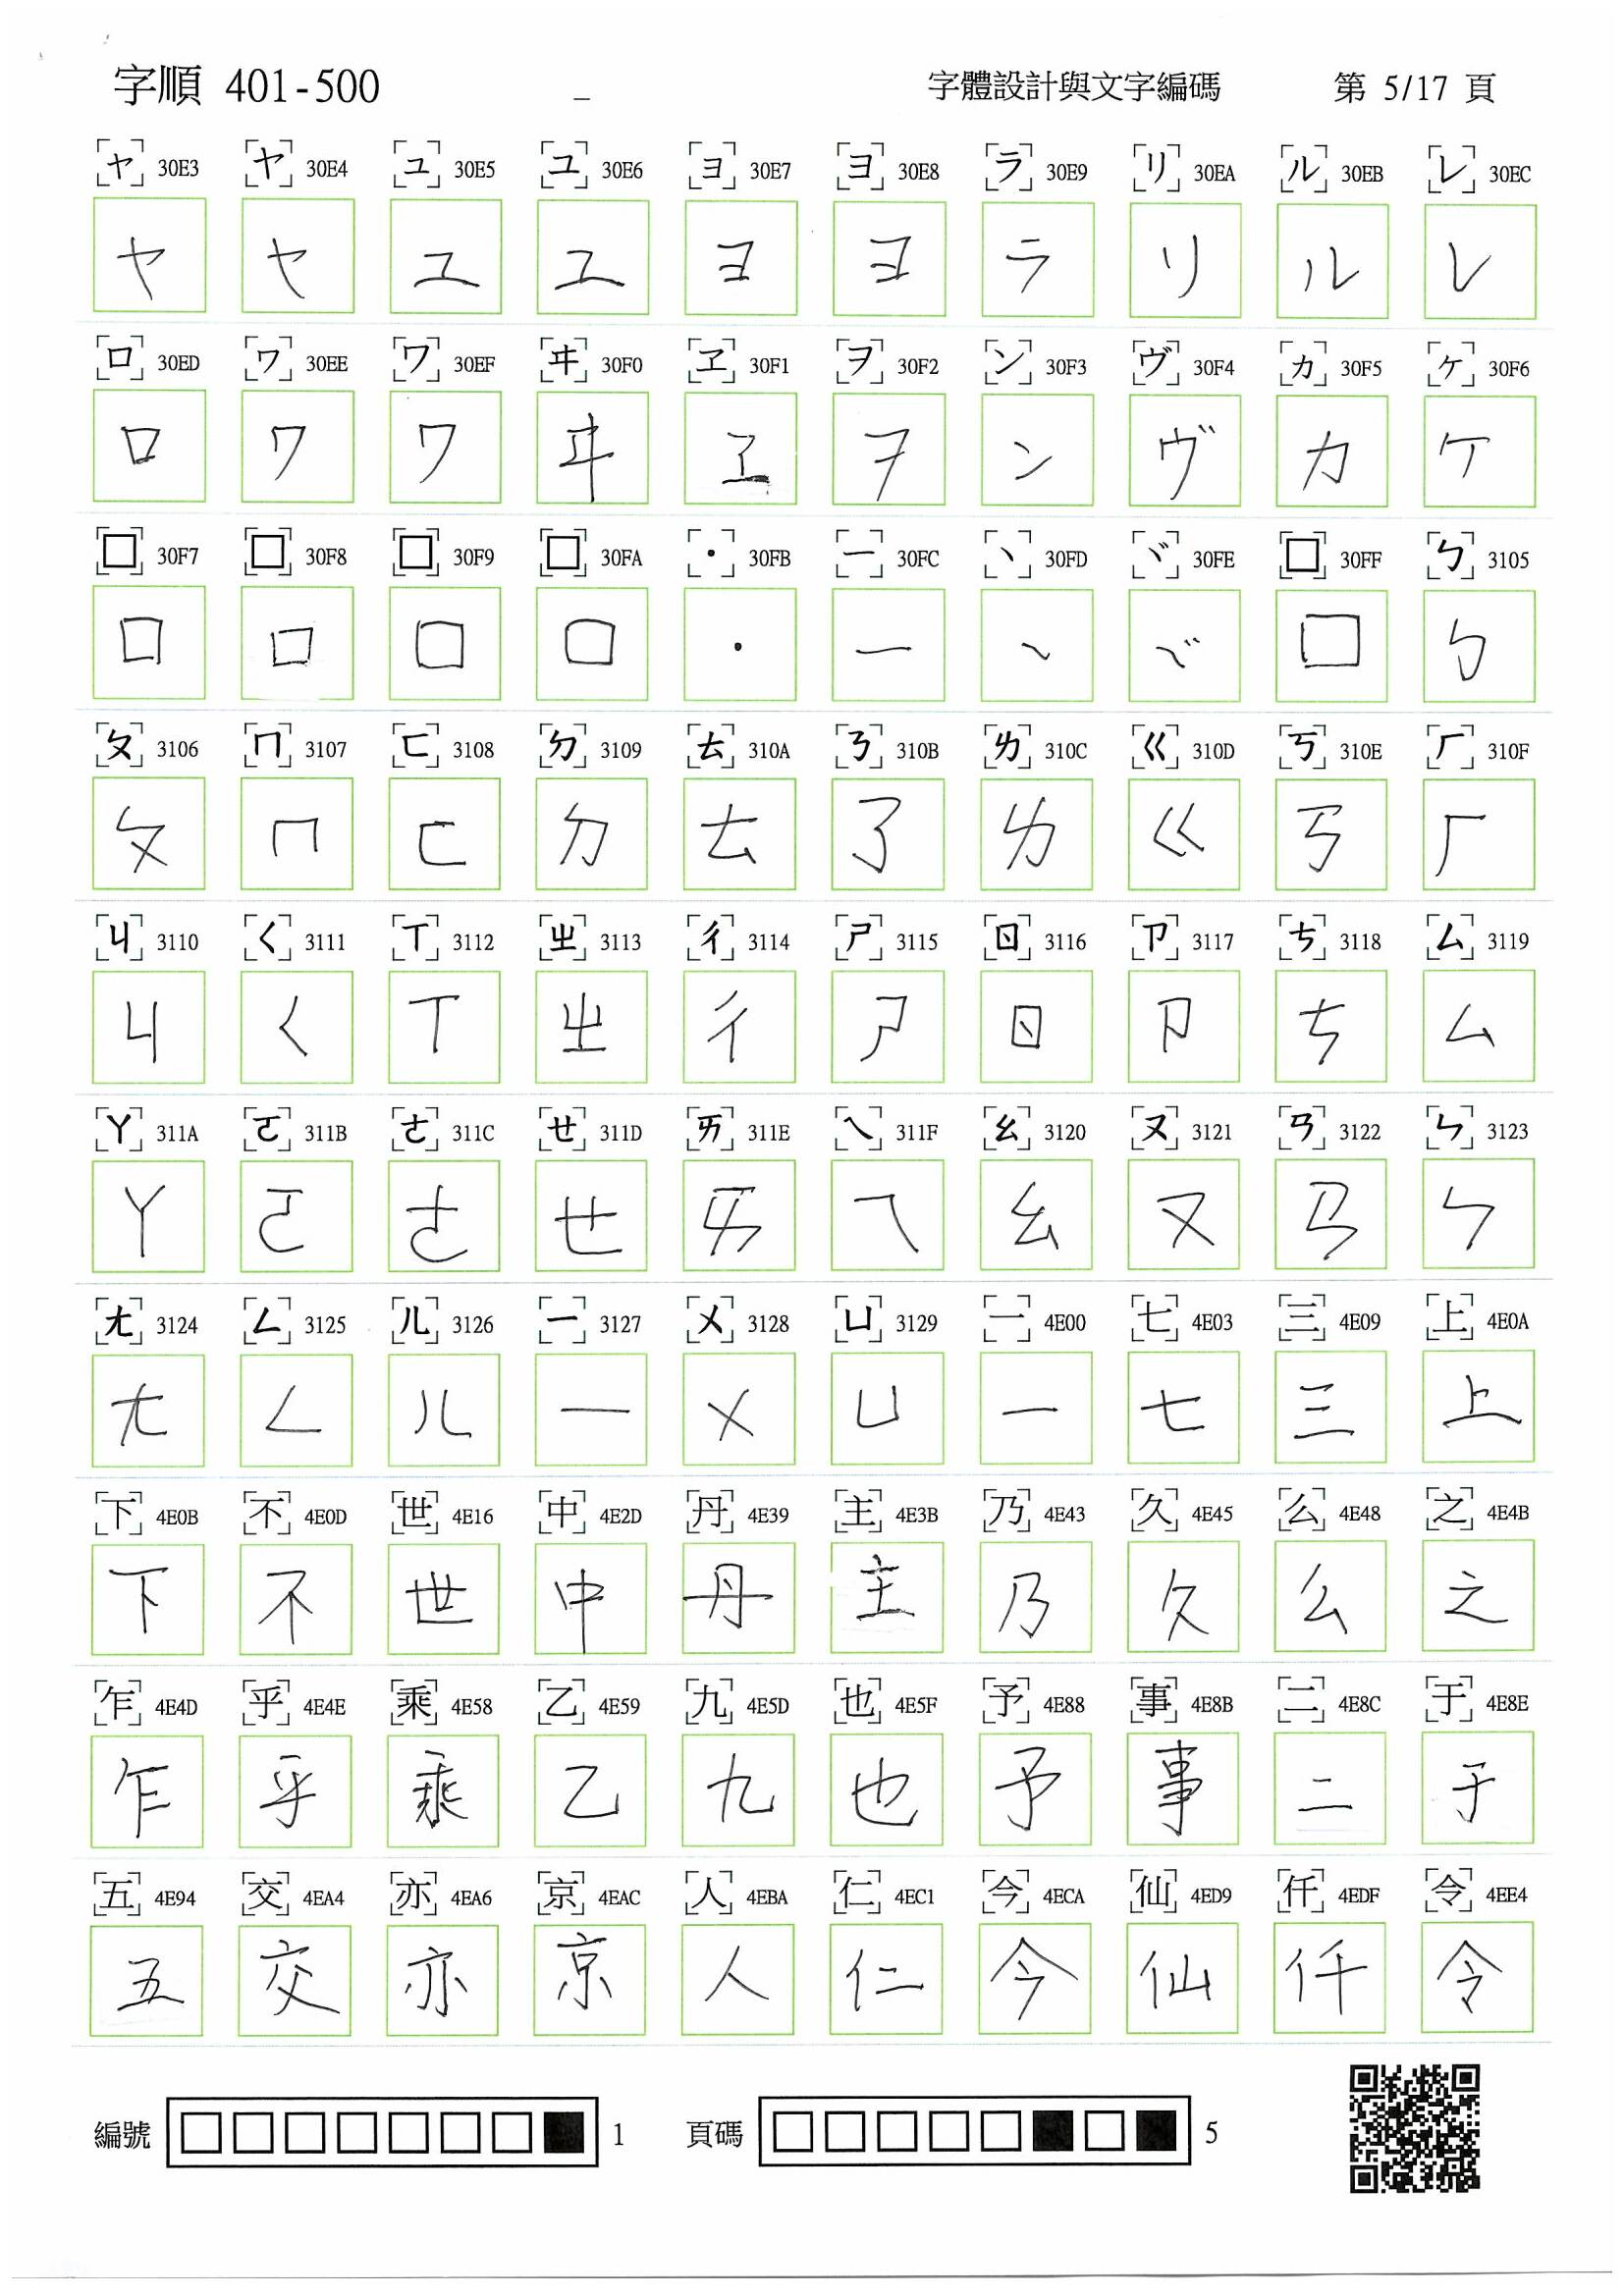 字順 401-500 _ 字體設計與文字編碼 第 5/17 頁
ャ 30E3 ヤ 30E4 ュ 30E5 ユ 30E6 ョ 30E7 ヨ 30E8 ラ 30E9 リ 30EA ル 30EB レ 30EC
ヤ ヤ ユ ユ ヨ ヨ ラ リ ル レ
ロ 30ED ヮ 30EE ワ 30EF ヰ 30F0 ヱ 30F1 ヲ 30F2 ン 30F3 ヴ 30F4 ヵ 30F5 ヶ 30F6
ロ ワ ワ ヰ ヱ ヲ ン ヴ カ ケ
□ 30F7 □ 30F8 □ 30F9 □ 30FA ・ 30FB ー 30FC ヽ 30FD ヾ 30FE □ 30FF ㄅ 3105
□ □ □ □ ・ ー ヽ ヾ □ ㄅ
ㄆ 3106 ㄇ 3107 ㄈ 3108 ㄉ 3109 ㄊ 310A ㄋ 310B ㄌ 310C ㄍ 310D ㄎ 310E ㄏ 310F
ㄆ ㄇ ㄈ ㄉ ㄊ ㄋ ㄌ ㄍ ㄎ ㄏ
ㄐ 3110 ㄑ 3111 ㄒ 3112 ㄓ 3113 ㄔ 3114 ㄕ 3115 ㄖ 3116 ㄗ 3117 ㄘ 3118 ㄙ 3119
ㄐ ㄑ ㄒ ㄓ ㄔ ㄕ ㄖ ㄗ ㄘ ㄙ
ㄚ 311A ㄛ 311B ㄜ 311C ㄝ 311D ㄞ 311E ㄟ 311F ㄠ 3120 ㄡ 3121 ㄢ 3122 ㄣ 3123
ㄚ ㄛ ㄜ ㄝ ㄞ ㄟ ㄠ ㄡ ㄢ ㄣ
ㄤ 3124 ㄥ 3125 ㄦ 3126 ㄧ 3127 ㄨ 3128 ㄩ 3129 一 4E00 七 4E03 三 4E09 上 4E0A
ㄤ ㄥ ㄦ ㄧ ㄨ ㄩ 一 七 三 上
下 4E0B 不 4E0D 世 4E16 中 4E2D 丹 4E39 主 4E3B 乃 4E43 久 4E45 么 4E48 之 4E4B
下 不 世 中 丹 主 乃 久 么 之
乍 4E4D 乎 4E4E 乘 4E58 乙 4E59 九 4E5D 也 4E5F 予 4E88 事 4E8B 二 4E8C 于 4E8E
乍 乎 乘 乙 九 也 予 事 二 于
五 4E94 交 4EA4 亦 4EA6 京 4EAC 人 4EBA 仁 4EC1 今 4ECA 仙 4ED9 仟 4EDF 令 4EE4
五 交 亦 京 人 仁 今 仙 仟 令
編號 □□□□□□□■ 1 頁碼 □□□□□■□■ 5